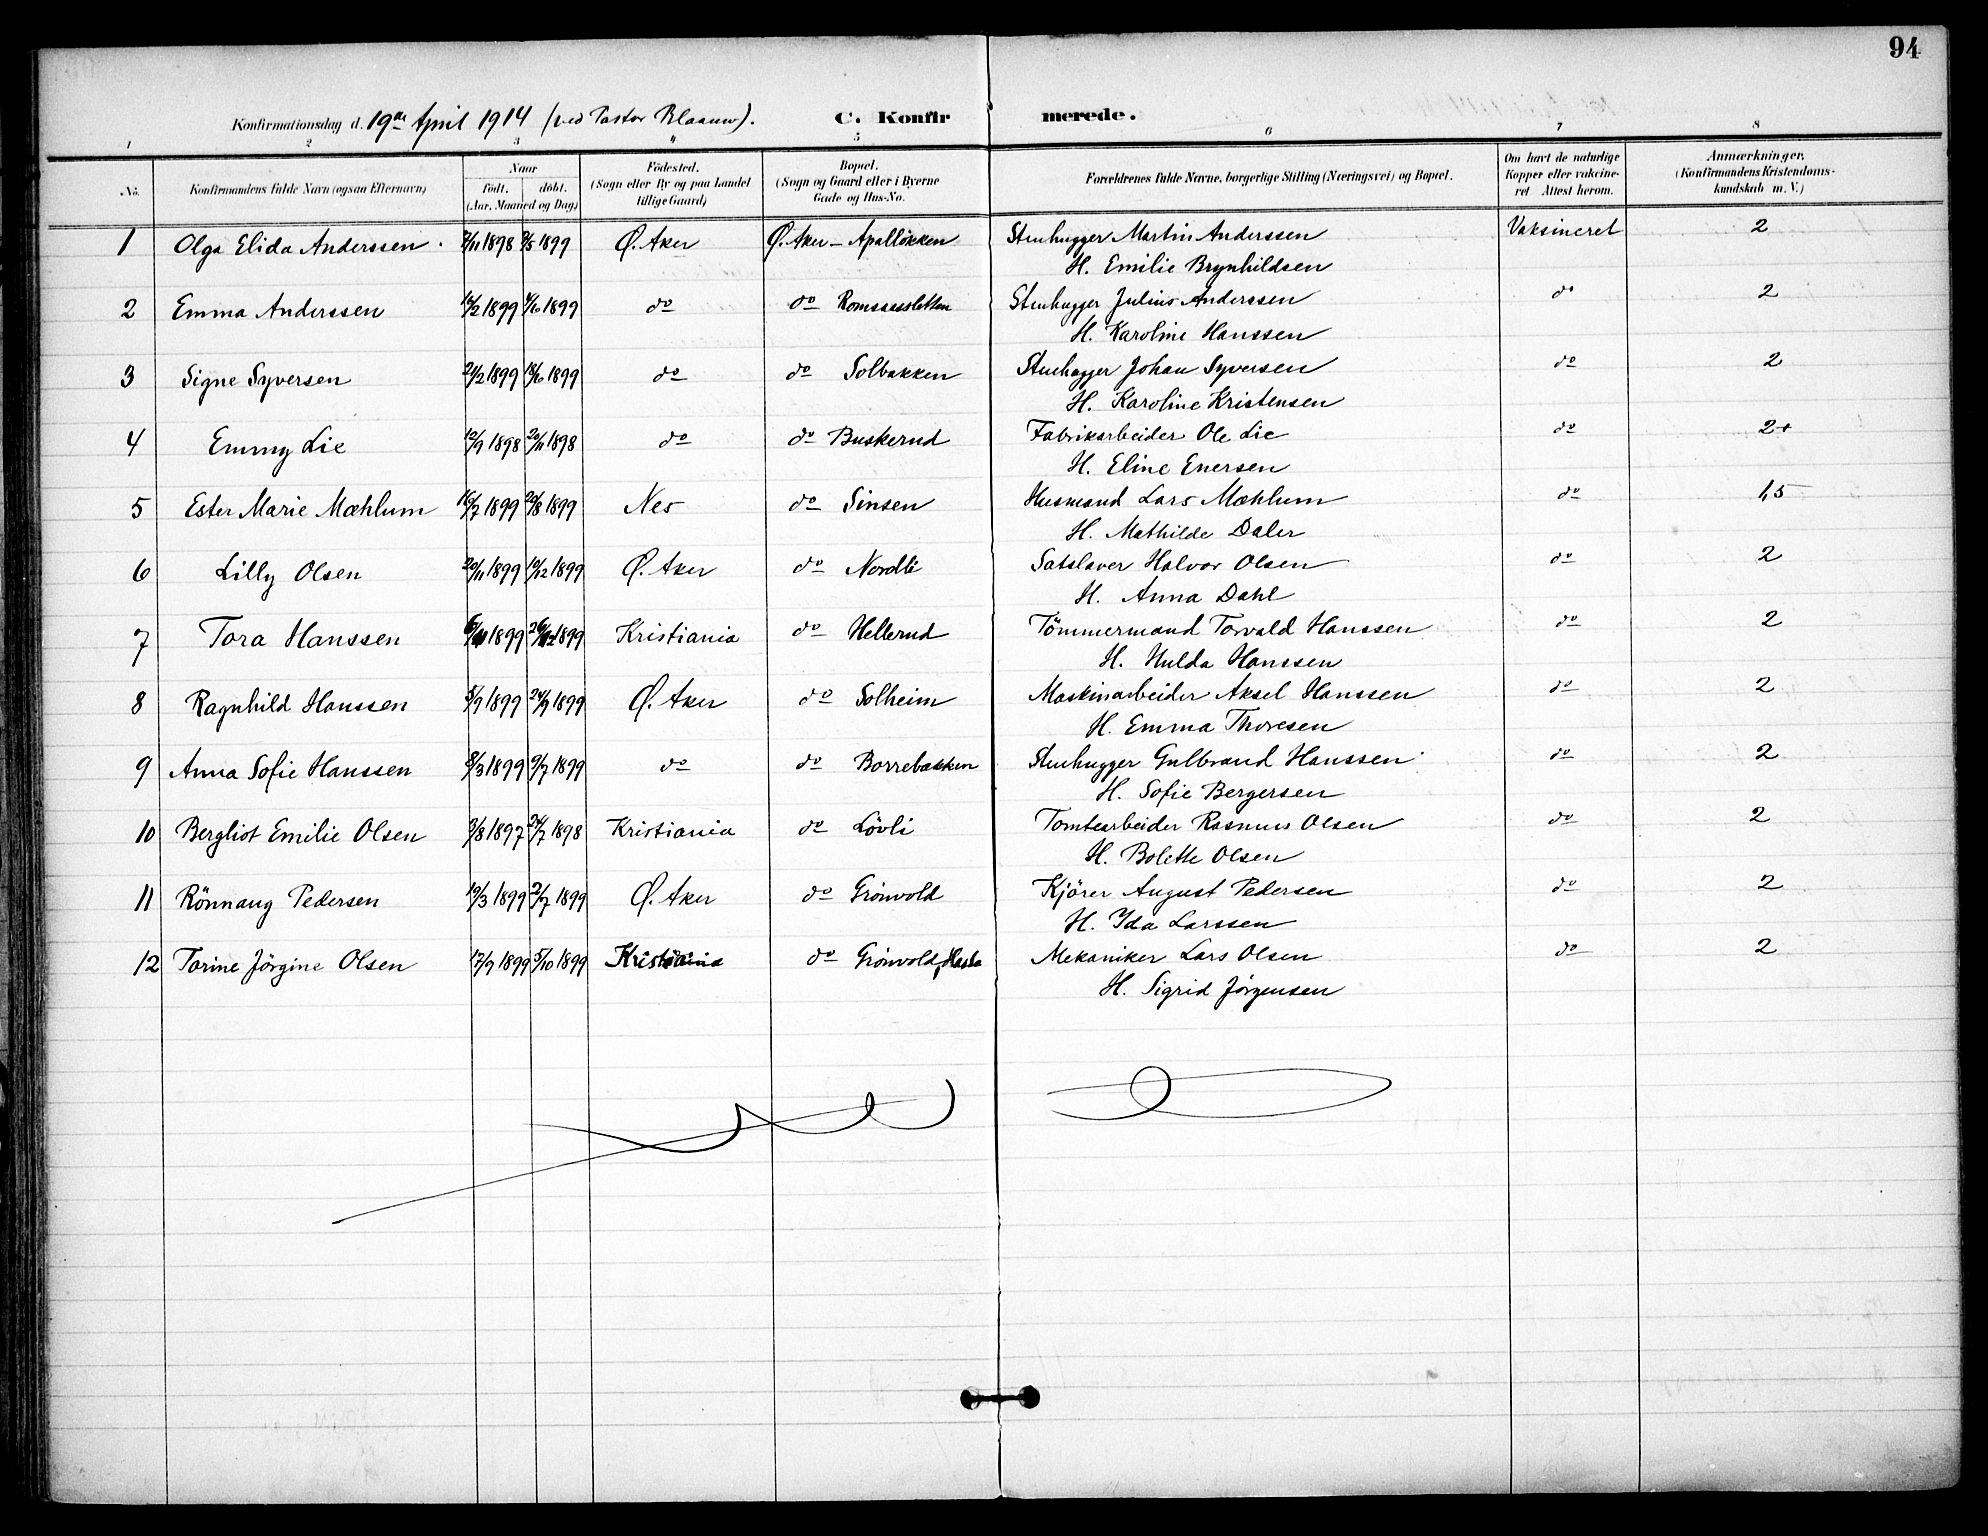 94
Konfirmationsdag d. 19de April 1914 (ved Pastor Blaauw). C. Konfirmerede.
1 2 3 4 5 6 7 8
No. Konfirmandens fulde Navn (ogsaa Efternavn) Naar født. døbt. (Aar, Maaned og Dag) Fødested. (Sogn eller By og paa Landet tillige Gaard) Bopæl. (Sogn og Gaard eller i Byerne Gade og Hus-No. Forældrenes fulde Navne, borgerlige Stilling (Næringsvei) og Bopæl. Om havt de naturlige Kopper eller vaksineret Attest herom. Anmærkninger. (Konfirmandens Kristendomskundskab m. V.)
1 Olga Elida Anderssen 1898 1899 Ø. Aker Ø. Aker – Apalløkken Stenhugger Martin Anderssen Vaksineret 2
H. Emilie Brynhildsen
2 Emma Anderssen 1899 1899 do do Romsaassletten Stenhugger Julius Anderssen do 2
H. Karoline Hanssen
3 Signe Syversen 1899 1899 do do Solbakken Stenhugger Johan Syversen do 2
H. Karoline Kristensen
4 Emmy Lie 10/9 1898 20/11 1898 do do Buskerud Fabrikarbeider Ole Lie do 2+
H. Eline Enersen
5 Ester Marie Mæhlum 16/7 1899 20/8 1899 Nes do Sinsen Husmand Lars Mæhlum do 1,5
H. Mathilde Daler
6 Lilly Olsen 20/11 1899 10/12 1899 Ø. Aker do Nordli Halvor Olsen do 2
H. Anna Dahl
7 Tora Hanssen 1899 1899 Kristiania do Hellerud Tömmermand Torvald Hanssen do 2
H. Hulda Hanssen
8 Ragnhild Hanssen 1899 24/9 1899 Ø. Aker do Solheim Maskinarbeider Aksel Hanssen do 2
H. Emma Thoresen
9 Anna Sofie Hanssen 8/3 1899 9/7 1899 do do Borrebakken Stenhugger Gulbrand Hanssen do 2
H. Sofie Bergersen
10 Bergliot Emilie Olsen 1897 24/7 1898 Kristiania do Lövli Tomtearbeider Rasmus Olsen do 2
H. Bolette Olsen
11 Rönnaug Pedersen 19/3 1899 2/7 1899 Ø. Aker do Grönvold Kjörer August Pedersen do 2
H. Ida Larssen
12 Torine Jörgine Olsen 17/9 1899 5/10 1899 Kristiania do Grönvold, Hasle Mekaniker Lars Olsen do 2
H. Sigrid Jörgensen